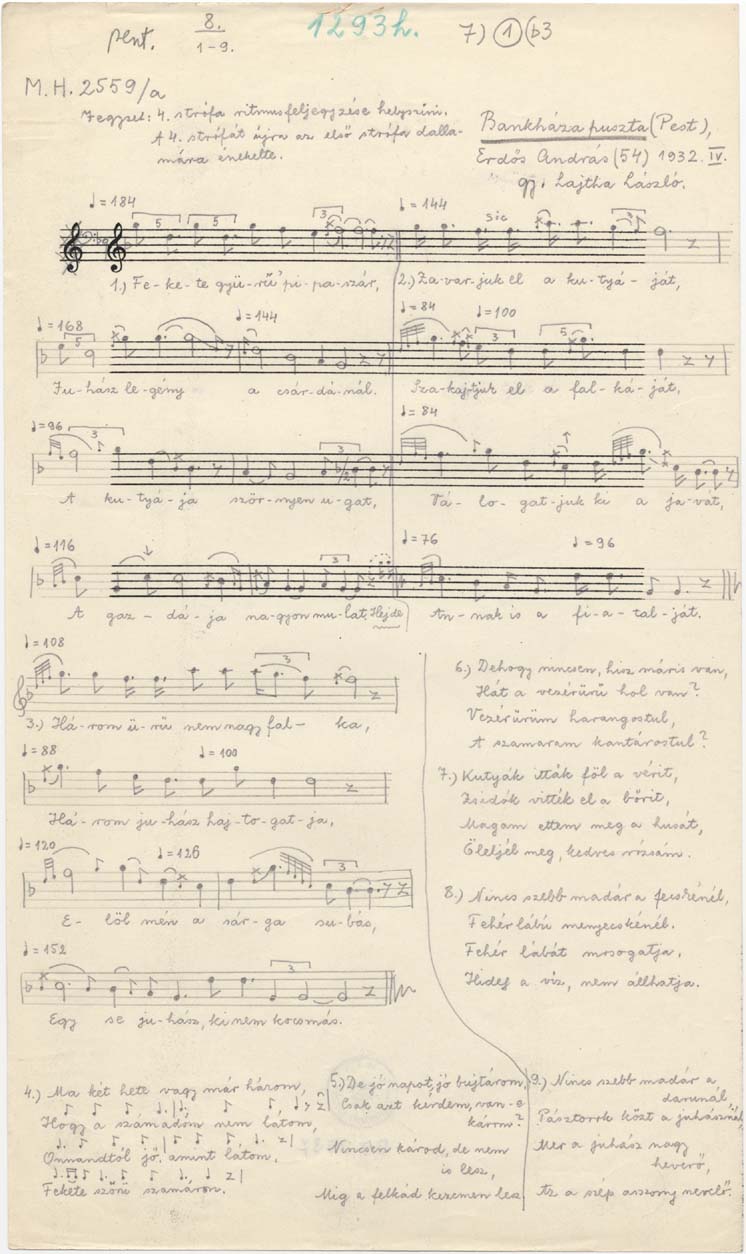 pent. 8. 1-9. 1293h. 7) 1 (b3
M.H. 2559/a
Jegyzet: 4. strófa ritmusfeljegyzése helyszíni.
A 4. strófát újra az első strófa dalla-
mára énekelte.
Bankháza puszta (Pest),
Erdős András (54) 1932. IV.
gy. Lajtha László.
♩= 184 ♩= 144
5 5 3 sic 3
1.) Fe-ke-te gyürű pi-pa-szár, 2.) Za-var-juk el a ku-tyá-ját,
♩= 168 ♩= 144 ♩= 84 ♩= 100
5 3 5
Juhász le-gény a csár-dá-nál. Sza-kajtjuk el a fal-ká-ját,
♩= 96 ♩= 84
3 3
A ku-tyá-ja ször-nyen u-gat, Vá-lo-gat-juk ki a ja-vát,
♩= 116 ♩= 76 ♩= 96
3
A gaz-dá-ja na-gyon mu-lat. Hejde An-nak is a fi-a-tal-ját.
♩= 108
3
3.) Há-rom ü-rü nem nagy fal-ka,
♩= 88 ♩= 100
Há-rom ju-hász haj-to-gat-ja,
♩= 120 ♩= 126
3
E-löl mén a sár-ga su-bás,
♩= 152
3
Egy se ju-hász, ki nem kocsmás.
6.) Dehogy nincsen, hisz máris van,
Hát a vezérürü hol van?
Vezérürüm harangostul,
A szamaram kantárostul?
7.) Kutyák itták föl a vérit,
Zsidók vitték el a bőrit,
Magam ettem meg a husát,
Öleljél meg, kedves rózsám.
8.) Nincs szebb madár a fecskénél,
Fehér lábú menyecskénél.
Fehér lábát mosogatja,
Hideg a víz, nem állhatja.
4.) Ma két hete vagy már három,
Hogy a számadóm nem látom,
Onnandtól jő, amint látom,
Fekete szőrű szamáron.
5.) De jó napot, jó bujtárom,
Csak azt kérdem, van-e
károm?
Nincsen károd, de nem
is lesz,
Míg a felkád kezemen lesz
9.) Nincs szebb madár a
darunál,
Pásztorok közt a juhásznál,
Mer a juhász nagy
heverő,
Az a szép asszony nevelő.